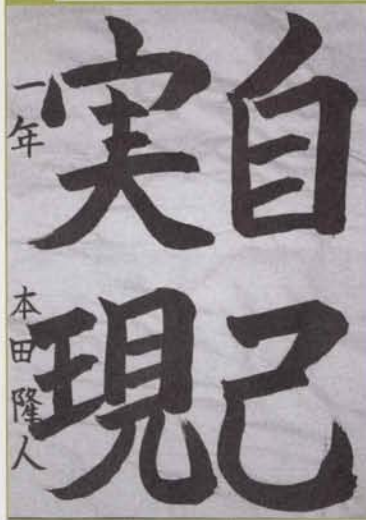 自己
実現
一年 本田隆人